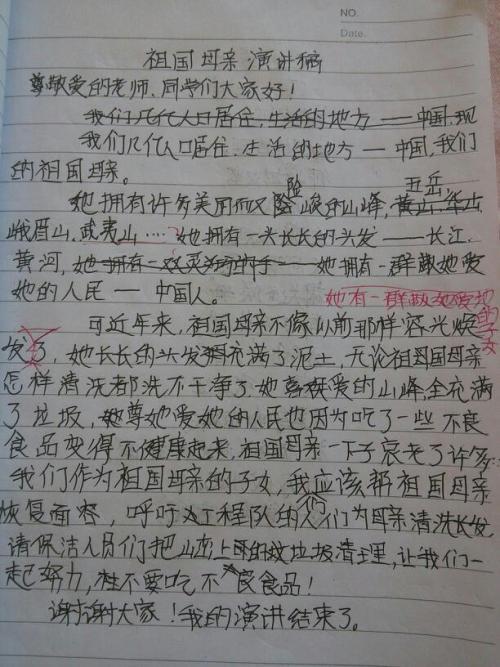 NO.
Date.
祖国母亲演讲稿
尊敬爱的老师、同学们大家好!
我们几代人口居住、生活的地方——中国,现
我们几代人口居住、生活的地方——中国,我们
的祖国母亲。
险 五岳
她拥有许多美丽而又险峻的山峰,黄山、华山
峨眉山、武夷山……她拥有一头长长的头发——长江、
黄河,她拥有一双灵巧的手——她拥有一群敬她爱
她的人民——中国人。
她有一群敬她爱她的子女
可近年来,祖国母亲不像以前那样容光焕
发了,她长长的头发充满了泥土,无论祖国母亲
怎样清洗都洗不干净了。她喜爱的山峰,全充满
了垃圾,尊她爱她的人民也因为吃了一些不良
食品变得不健康起来,祖国母亲一下子衰老了许多…
我们作为祖国母亲的子女,我应该帮祖国母亲
们
恢复面容,呼吁工程队的人们为母亲清洗长发,
请保洁人员们把山上的垃圾清理,让我们一
起努力,不要吃不良食品!
谢谢大家!我的演讲结束了。